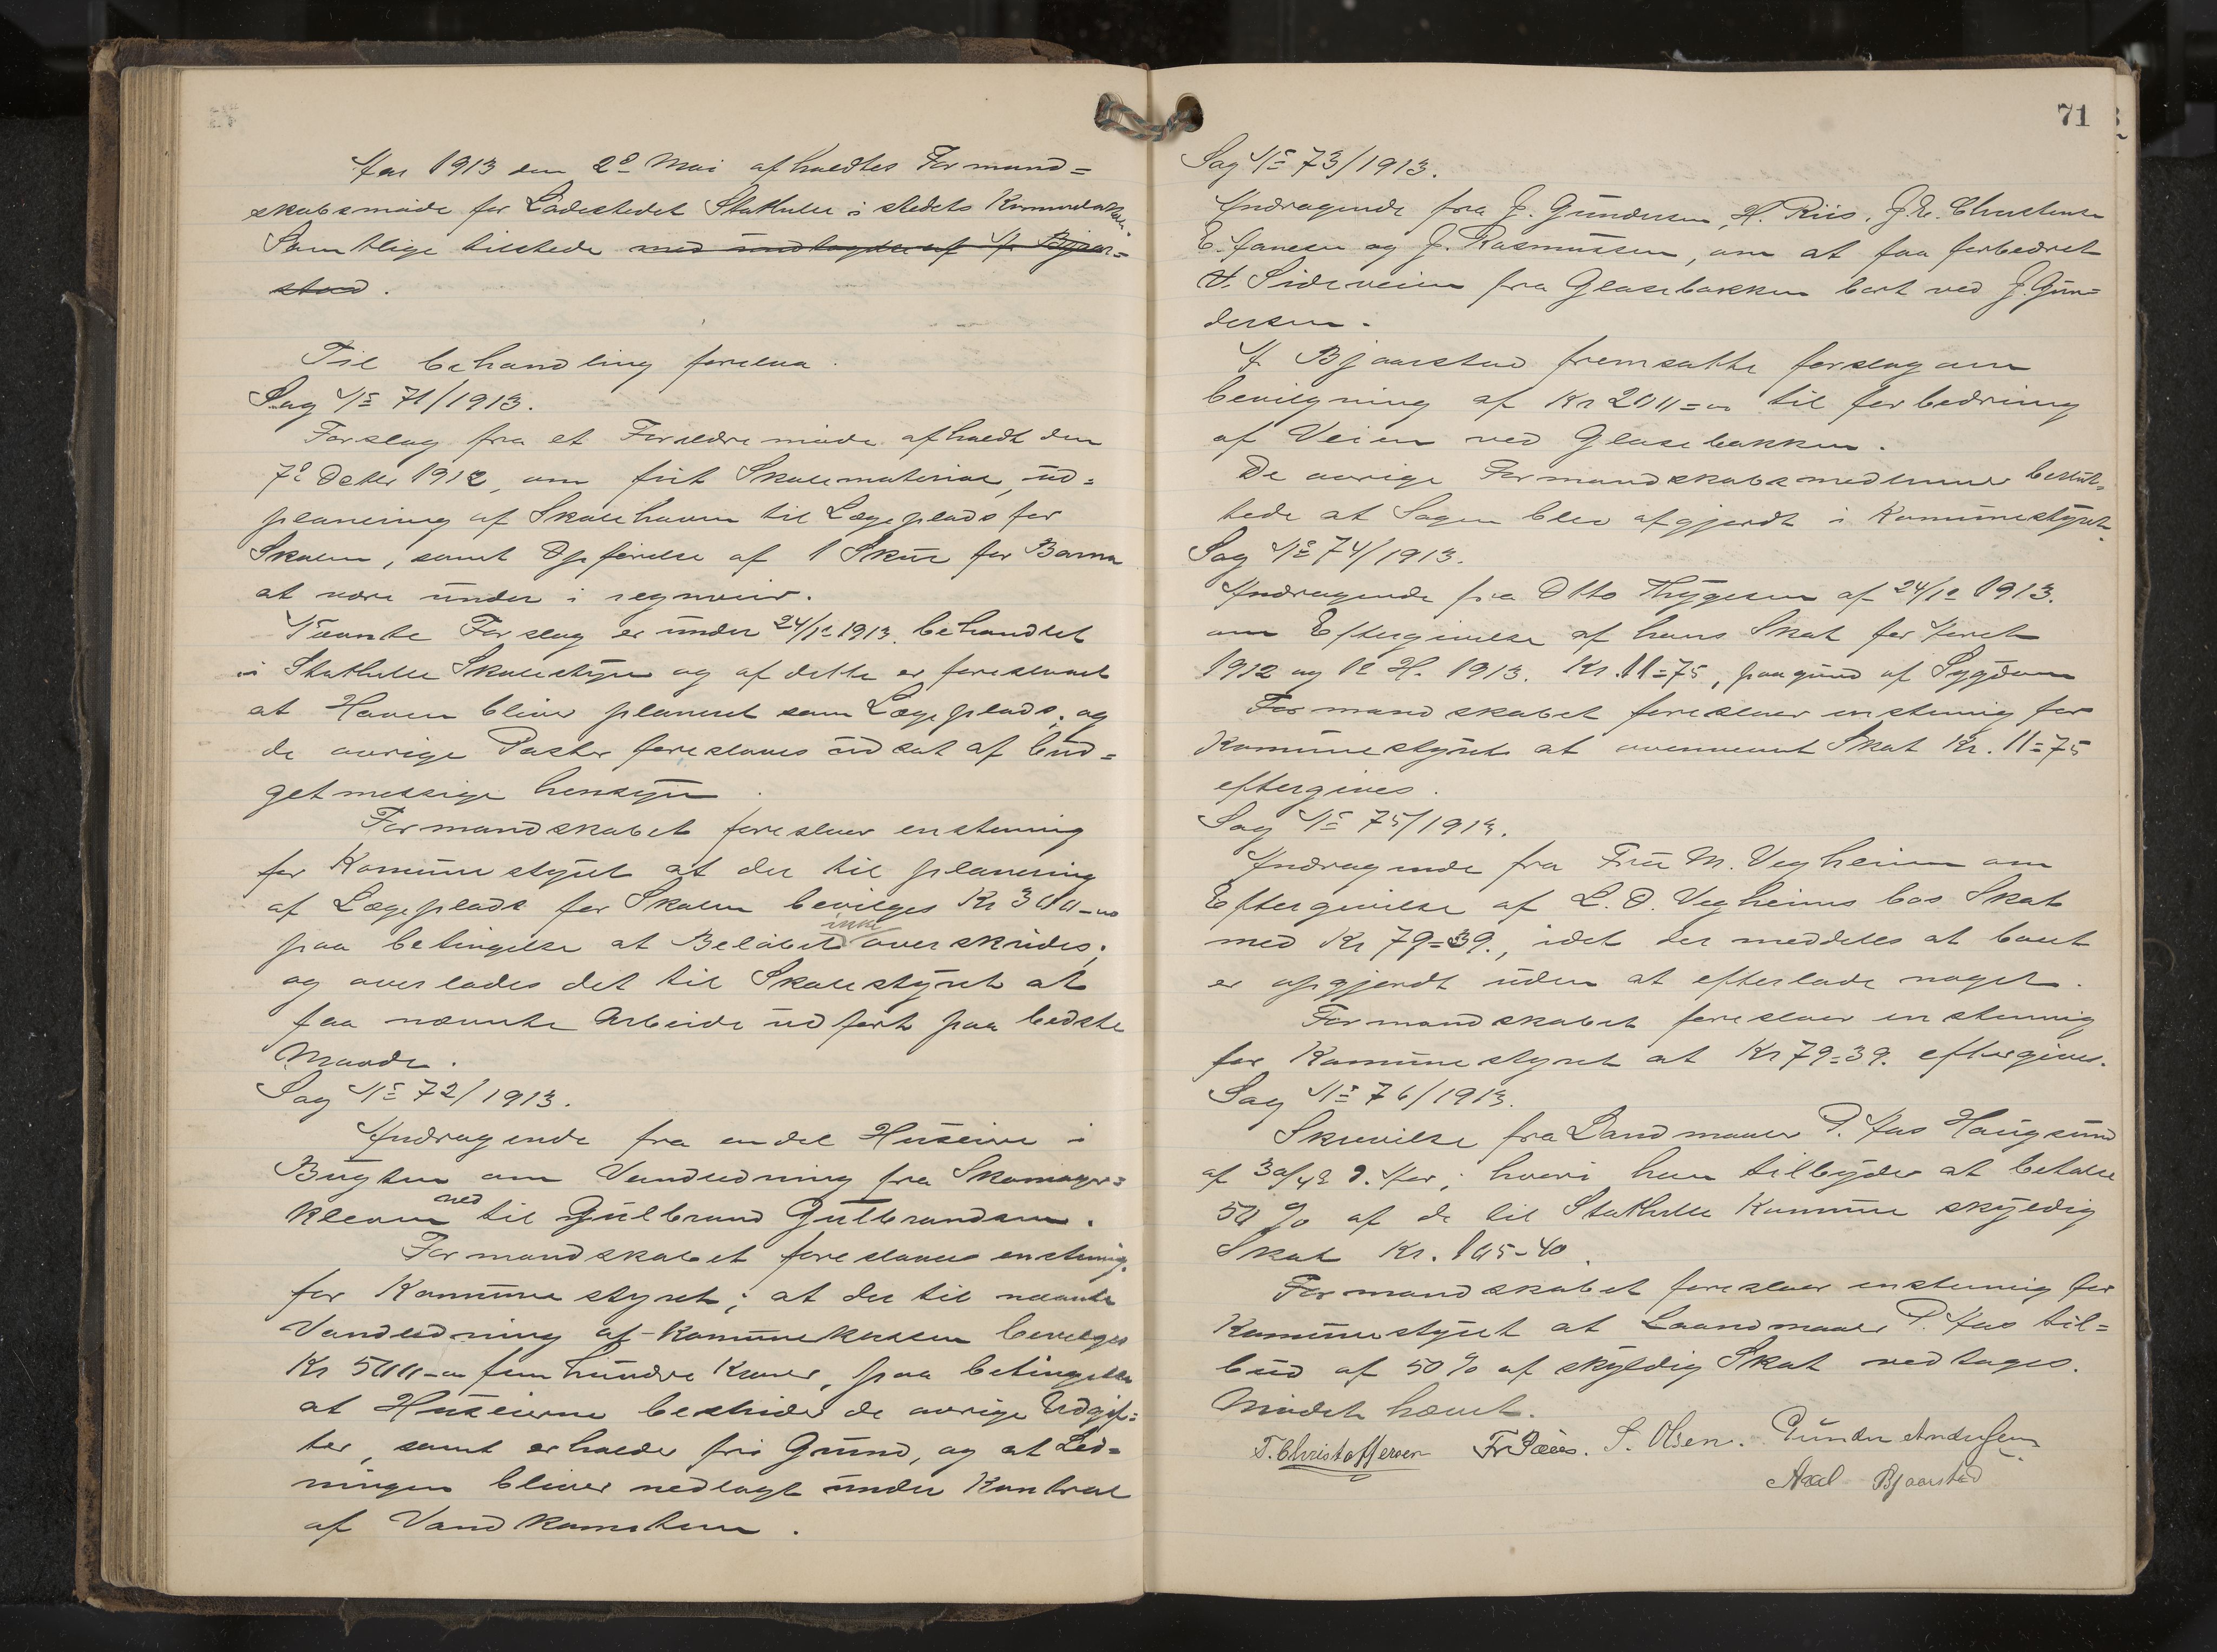 Aar 1913 den 2º Mai afholdtes Formand=
skabsmøde for Ladestedet Stathelle i stedets Kommunelokale.
Samtlige tilstede med undtagelse af A. Bjaar=
stad.
Til behandling forelaa.
Sag № 71/1913.
Forslag fra et Forældremøde afholdt den
7º Octbr 1912, om frit Skolemateriel, ud=
planering af Skolehaven til Legeplads for
Skolen, samt Opførelse af 1 Skur for Barna
at være under i regnveir.
Nævnte Forslag er under 24/1º 1913. behandlet
i Stathelle Skolestyre og af dette er foreslaaet
at Haven bliver planeret som Legeplads, og
de øvrige Poster foreslaaes udsat af bud=
getmessige hensyn.
Formandskabet foreslaar enstemmig
for Kommunestyret at der til planering
af Legeplads for Skolen bevilges Kr 300-00
paa betingelse at Beløbet ikke overskrides;
og overlades det til Skolestyret at
faa nævnte Arbeide udført paa bedste
Maade.
Sag № 72/1913.
Andragende fra endel Huseiere i
Bugten om Vandledning fra Skomager=
kleven ned til Gulbrand Gulbrandsen.
Formandskabet foreslaaes enstemig.
for Kommunestyret; at der til nævnte
Vandledning af Kommunekassen bevilges
Kr 500-00 fem hundre Kroner, paa betingelse
at Huseierne bestrider de øvrige Udgif=
ter, samt erholder fri Grund, og at Led=
ningen bliver nedlagt under Kontrol
af Vandkomiteen.
71
Sag № 73/1913.
Andragende fra J. Gundersen, H. Riis, J. Chr. Christensen
E. Jansen og J. Rasmussen, om at faa forbedret
Sideveien fra Glasebakken bort ved J. Gun=
dersen.
A. Bjaarstad fremsatte forslag om
bevilgning af Kr 200=00 til forbedring
af Veien ved Glasebakken.
De øvrige Formandskabsmedlemmer beslut=
tede at Sagen blev afgjordt i Kommunestyret.
Sag № 74/1913.
Andragende fra Otto Thygesen af 24/1º 1913.
om Eftergivelse af hans Skat for Aaret
1912 og 1ste H. 1913. Kr. 11=75, paagrund af Sygdom
Formandskabet foreslaar enstemig for
Kommunestyret at ovennevnt Skat Kr. 11=75
eftergives.
Sag № 75/1913.
Andragende fra Fru M. Vegheim om
Eftergivelse af L. O. Vegheims bos Skat
med Kr 79=39., idet der meddeles at boet
er opgjordt uden at efterlade noget.
Formandskabet foreslaar enstemmig
for Kommunestyret at Kr 79=39. eftergives.
Sag № 76/1913.
Skrivelse fra Landmaaler P. Aas Haugsund
af 30/4º d. Aar; hvori han tilbyder at betale
50 % af de til Stathelle Kommune skyldig
Skat Kr. 105-40.
Formandskabet foreslaar enstemmig for
Kommunestyret at Laandmaaler P. Aas til=
bud af 50% af skyldig Skat vedtages.
Mødet hævet.
T. Christoffersen S. Olsen. Gunder Andersen
Axel Bjaarstad